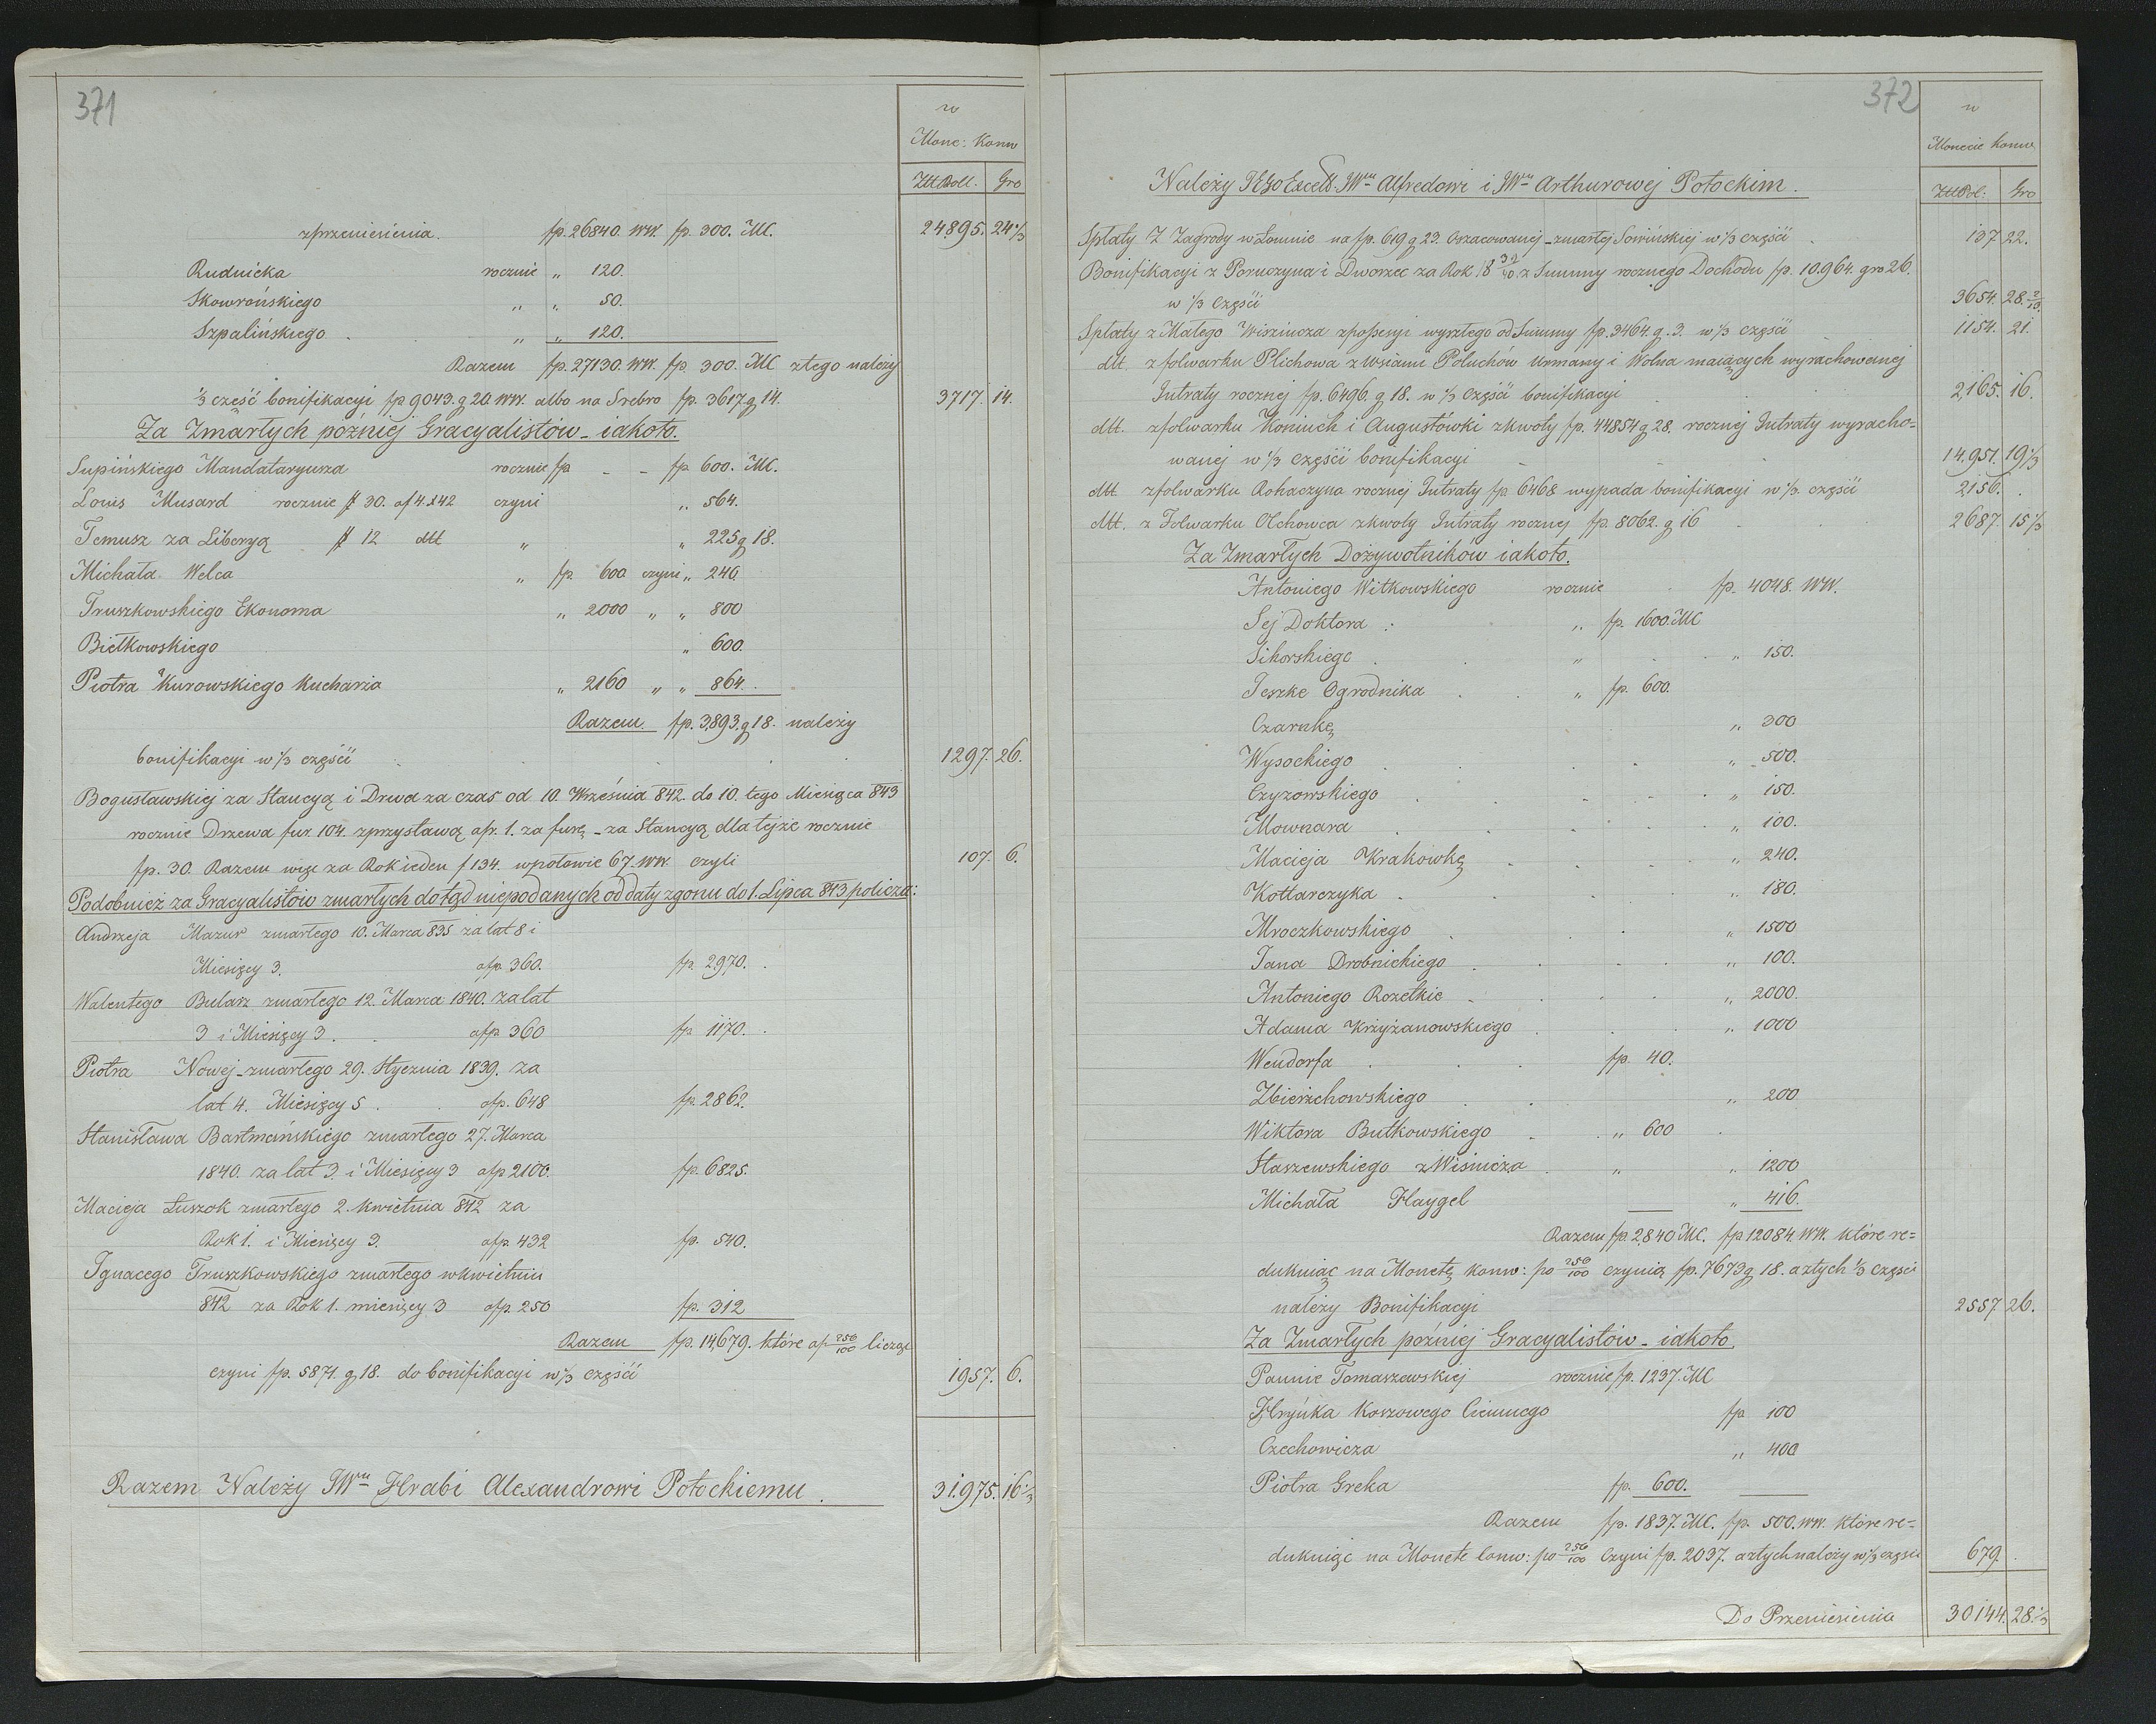 371
w
Monc: Konw
Ztt Poll. Gro
zprzeniesienia. fp. 26840. WW. fp. 300. MC. 24895. 24 1/3
Rudnicka rocznie „ 120.
Skowrońskiego „ „ 50.
Szpalińskiego „ „ 120.
Razem fp. 27130. WW. fp. 300. MC ztego należy
1/3 część bonifikacyi fp 9043. g 20 WW. albo na Srebro fp. 3617 g 14. 3717. 14.
Za Zmarłych później Gracyalistów - iakoto.
Supińskiego Mandataryusza rocznie fp - - fp 600. MC.
Louis Musard rocznie # 30. af 4.x42 czyni „ 564.
Temusz za Liberyą # 12 dtt „ „ 225 g 18.
Michała Welca „ fp 600 czyni „ 240.
Truszkowskiego Ekonoma „ 2000 „ „ 800
Bietkowskiego „ 600.
Piotra Kurowskiego Kucharza „ 2160 „ „ 864.
Razem fp. 3,893. g 18. należy
bonifikacyi w 1/3 części 1297. 26.
Bogusławskiej za Stancyą i Drwa za czas od 10. Września 842. do 10. tego Miesiąca 843
rocznie Drzewa fur 104. zprzystawą afr. 1. za furę - za Stancyą dla tejże rocznie
fp. 30. Razem więc za Rok ieden f 134. wpołowie 67. WW. czyli 107. 6.
Podobnież za Gracyalistów zmarłych dotąd niepodanych od daty zgonu do 1. Lipca 843 policza:
Andrzeja Mazur zmarłego 10. Marca 835 za lat 8 i
Miesięcy 3. afp. 360. fp. 2970.
Walentego Bularz zmarłego 12 Marca 1840. za lat
3 i Miesięcy 3. afp 360 fp 1170.
Piotra Nowej - zmarłego 29. Stycznia 1839. za
lat 4. Miesięcy 5. afp. 648 fp. 2862.
Stanisława Bartmańskiego zmarłego 27. Marca
1840. za lat 3. i Miesięcy 3 afp 2100. fp. 6825.
Macieja Łuszok zmarłego 2. kwietnia 842 za
Rok 1. i Miesięcy 3. afp. 432 fp. 540.
Ignacego Truszkowskiego zmarłego wkwietniu
842 za Rok 1. miesięcy 3 afp. 250 fp. 312
Razem fp. 14,679. które af 250/100 licząc
czyni fp. 5871. g 18. do bonifikacyi w 1/3 części 1957. 6.
Razem Należy JWu Hrabi Alexandrowi Potockiemu. 31,975. 16 1/3
372
w
Monecie Konw.
Ztt Pol: Gro
Należy JEgo Excell. JWu Alfredowi i JWu Arthurowej Potockim.
Spłaty Z Zagrody w Łomnie na fp. 619 g 23. oszacowanej - zmarłej Sowińskiej w 1/3 części 137 22.
Bonifikacyi z Poruczyna i Dworzec za Rok 18 39/40. z Summy rocznego Dochodu fp. 10.964. gro 26.
w 1/3 części 3654. 28. 2/10.
Spłaty z Małego Wisznicza zpossesyi wyszłego od Summy fp. 3464. g. 3. w 1/3 części 1154. 21.
dtt. zfolwarku Plichowa zWsiami Poluchów Urmany i Wolna maiących wyrachowanej
Intraty rocznej fp. 6496. g 18. w 1/3 części bonifikacyi 2,165. 16.
dtt. zfolwarku Koniuch i Augustówki zkwoty fp. 44854 g 28. rocznej Intraty wyracho=
wanej w 1/3 części bonifikacyi 14.951. 19 1/3
dtt zfolwarku Rohaczyna rocznej Intraty fp. 6468 wypada bonifikacyi w 1/3. części 2156.
dtt. z Folwarku Olchowca zkwoty Intraty rocznej fp. 8062. g 16 2687. 15 1/3
Za Zmarłych Dożywotników iakoto.
Antoniego Witkowskiego rocznie fp. 4048. WW.
Sej Doktora : „ fp. 1600. MC
Sikorskiego „ „ 150.
Jeszke Ogrodnika „ fp. 600.
Czarnkę „ 300
Wysockiego „ 500.
Czyzowskiego „ 150.
Mownara „ 100.
Macieja Krakówkę „ 240.
Kotlarczyka „ 180.
Mroczkowskiego „ 1500
Jana Drobnickiego „ 100.
Antoniego Rozetkie „ 2000.
Adama Krzyżanowskiego „ 1000
Wendorfa fp. 40.
Zbierzchowskiego „ 200
Wiktora Butkowskiego „ 600
Staszewskiego z Wiśnicza „ „ 1200
Michała Flaygel „ 416.
Razem fp. 2,840 MC. fp 12084. WW. które re=
dukuiąc na Monetę konw: po 250/100 czynią fp. 7673 g 18. aztych 1/3 części
należy Bonifikacyi 2557 26.
Za Zmarłych później Gracyalistów - iakoto.
Pannie Tomaszewskiej rocznie fp. 1237. MC
Hryńka Koszowego Ciemnego fp 100
Czechowicza „ 400
Piotra Greka fp. 600.
Razem fp. 1837. MC. fp. 500. WW. które re=
dukuiąc na Monete Conw: po 250/100 Czyni fp. 2037. aztych należy w 1/3 części 679.
Do Przeniesienia 30144. 28 1/3